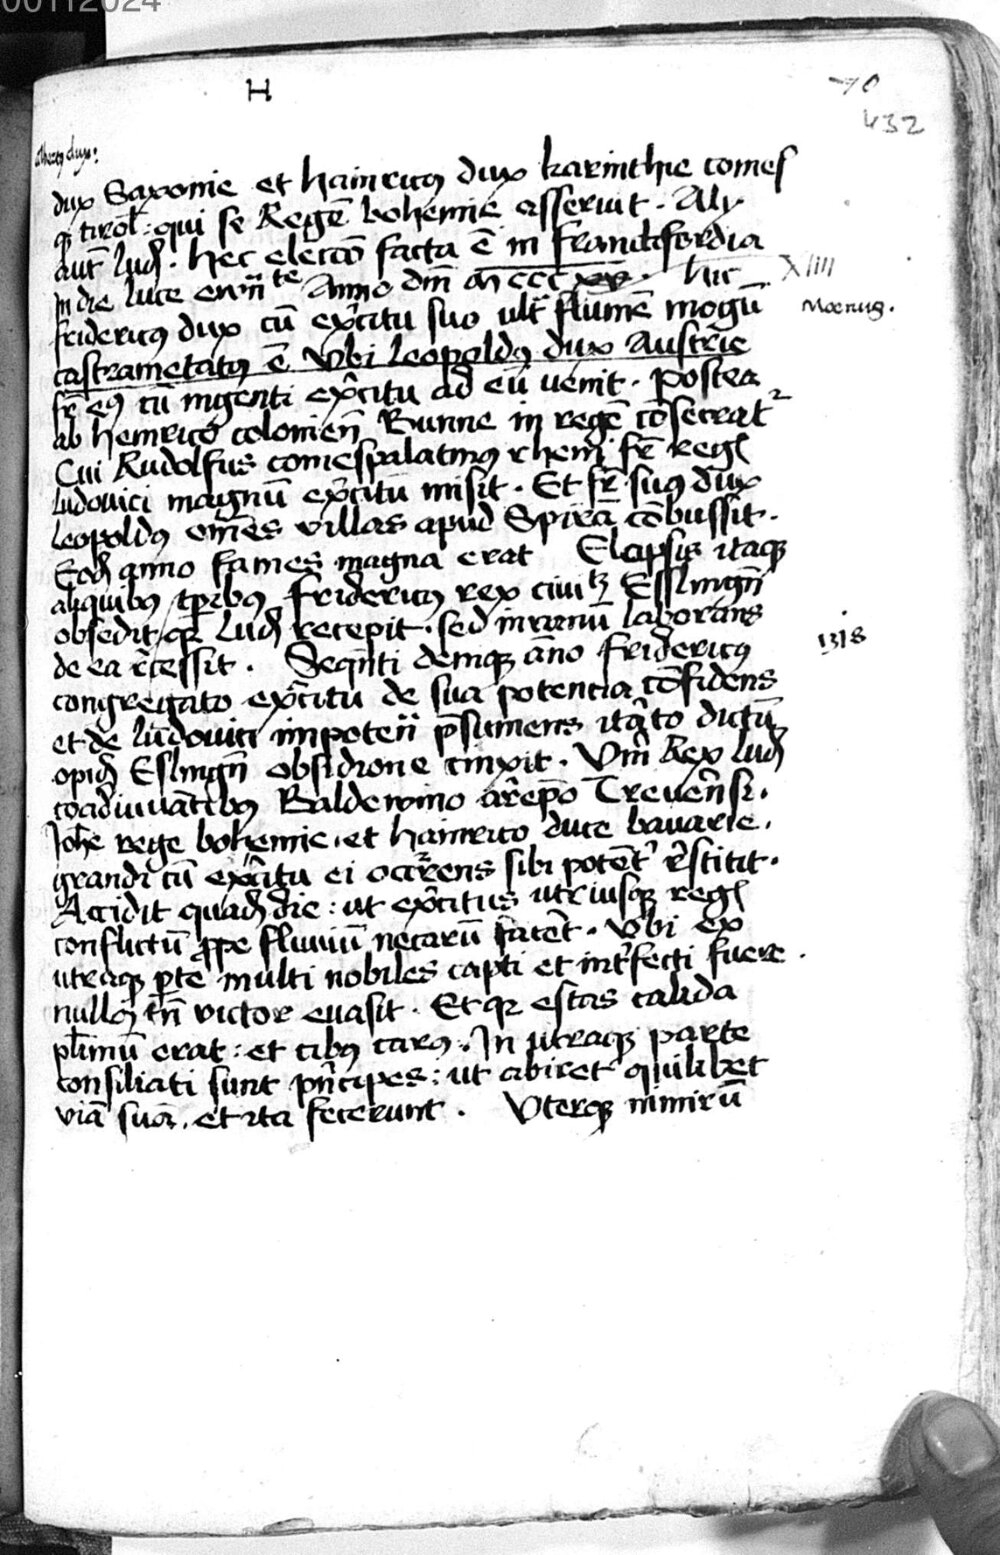 00112024
H
70
432
Albertꝫ dux:
dux Saxonie et hainricꝰ dux karinthie comes
qꝫ tirol̄: qui se Regē bohemie asseruit. Alij
aut̄ Ludꝫ. hec elecc̄o facta ē in franckfordia
In die luce ewn̄te Anno dn̄i m̄ ccc xv. hic
XIIII
fridericꝰ dux cū exc̄itu suo ult̄ flumē mogū
Moenus.
castrametatꝰ ē Vbi leopoldꝰ dux Austrie
fr̄ eiꝰ cū ingenti exc̄itu ad eū uenit. postea
ab henrico colonien̄ Bunne in regē cōsecrat᷑
Cui Rudolfus comespalatinꝰ rheni fr̄ regꝭ
ludouici magnū exc̄itū misit. Et fr̄ suꝰ dux
leopoldꝰ om̄es villas apud Spirā cōbussit.
Eodꝫ anno fames magna erat Elapsis itaqꝫ
aliquibꝰ tꝑibꝰ fridericꝰ rex ciuitꝫ Esslingn̄
obsedit qꝛ Ludꝫ recepit. sed inuanū laborans
de ea rc̄essit. Seqn̄ti demqꝫ āno fridericꝰ
1318
congregato exc̄itu de sua potencia cōfidens
et de Ludouici impotēn p̄sumens itᵉato dictū
opidꝫ Eslingn̄ obsidione cinxit. Vm̄ Rex Ludꝫ
coadiuuātibꝰ Baldewino ar̄epo Treuēn̄si.
Joh̄e rege bohemie. et hainrico duce bauarie.
grandi cū exc̄itu ei occr̄rens sibi potēt᷑ rīstitit.
Accidit quadꝫ die: ut exc̄itus utriusqꝫ regꝭ
conflictū ꝓpe fluuiū necarū facēt. Vbi ex
utraqꝫ ꝑte multi nobiles capti et int᷑fecti fuere.
nullꝰ tn̄ victor euasit. Et qꝛ estas calida
pl̄imū erat: et cibꝰ carꝰ. In utraqꝫ parte
consiliati sunt pn̄cipes: ut abiret quilibet
viā suā. et ita fecerunt. Uterqꝫ nimirū